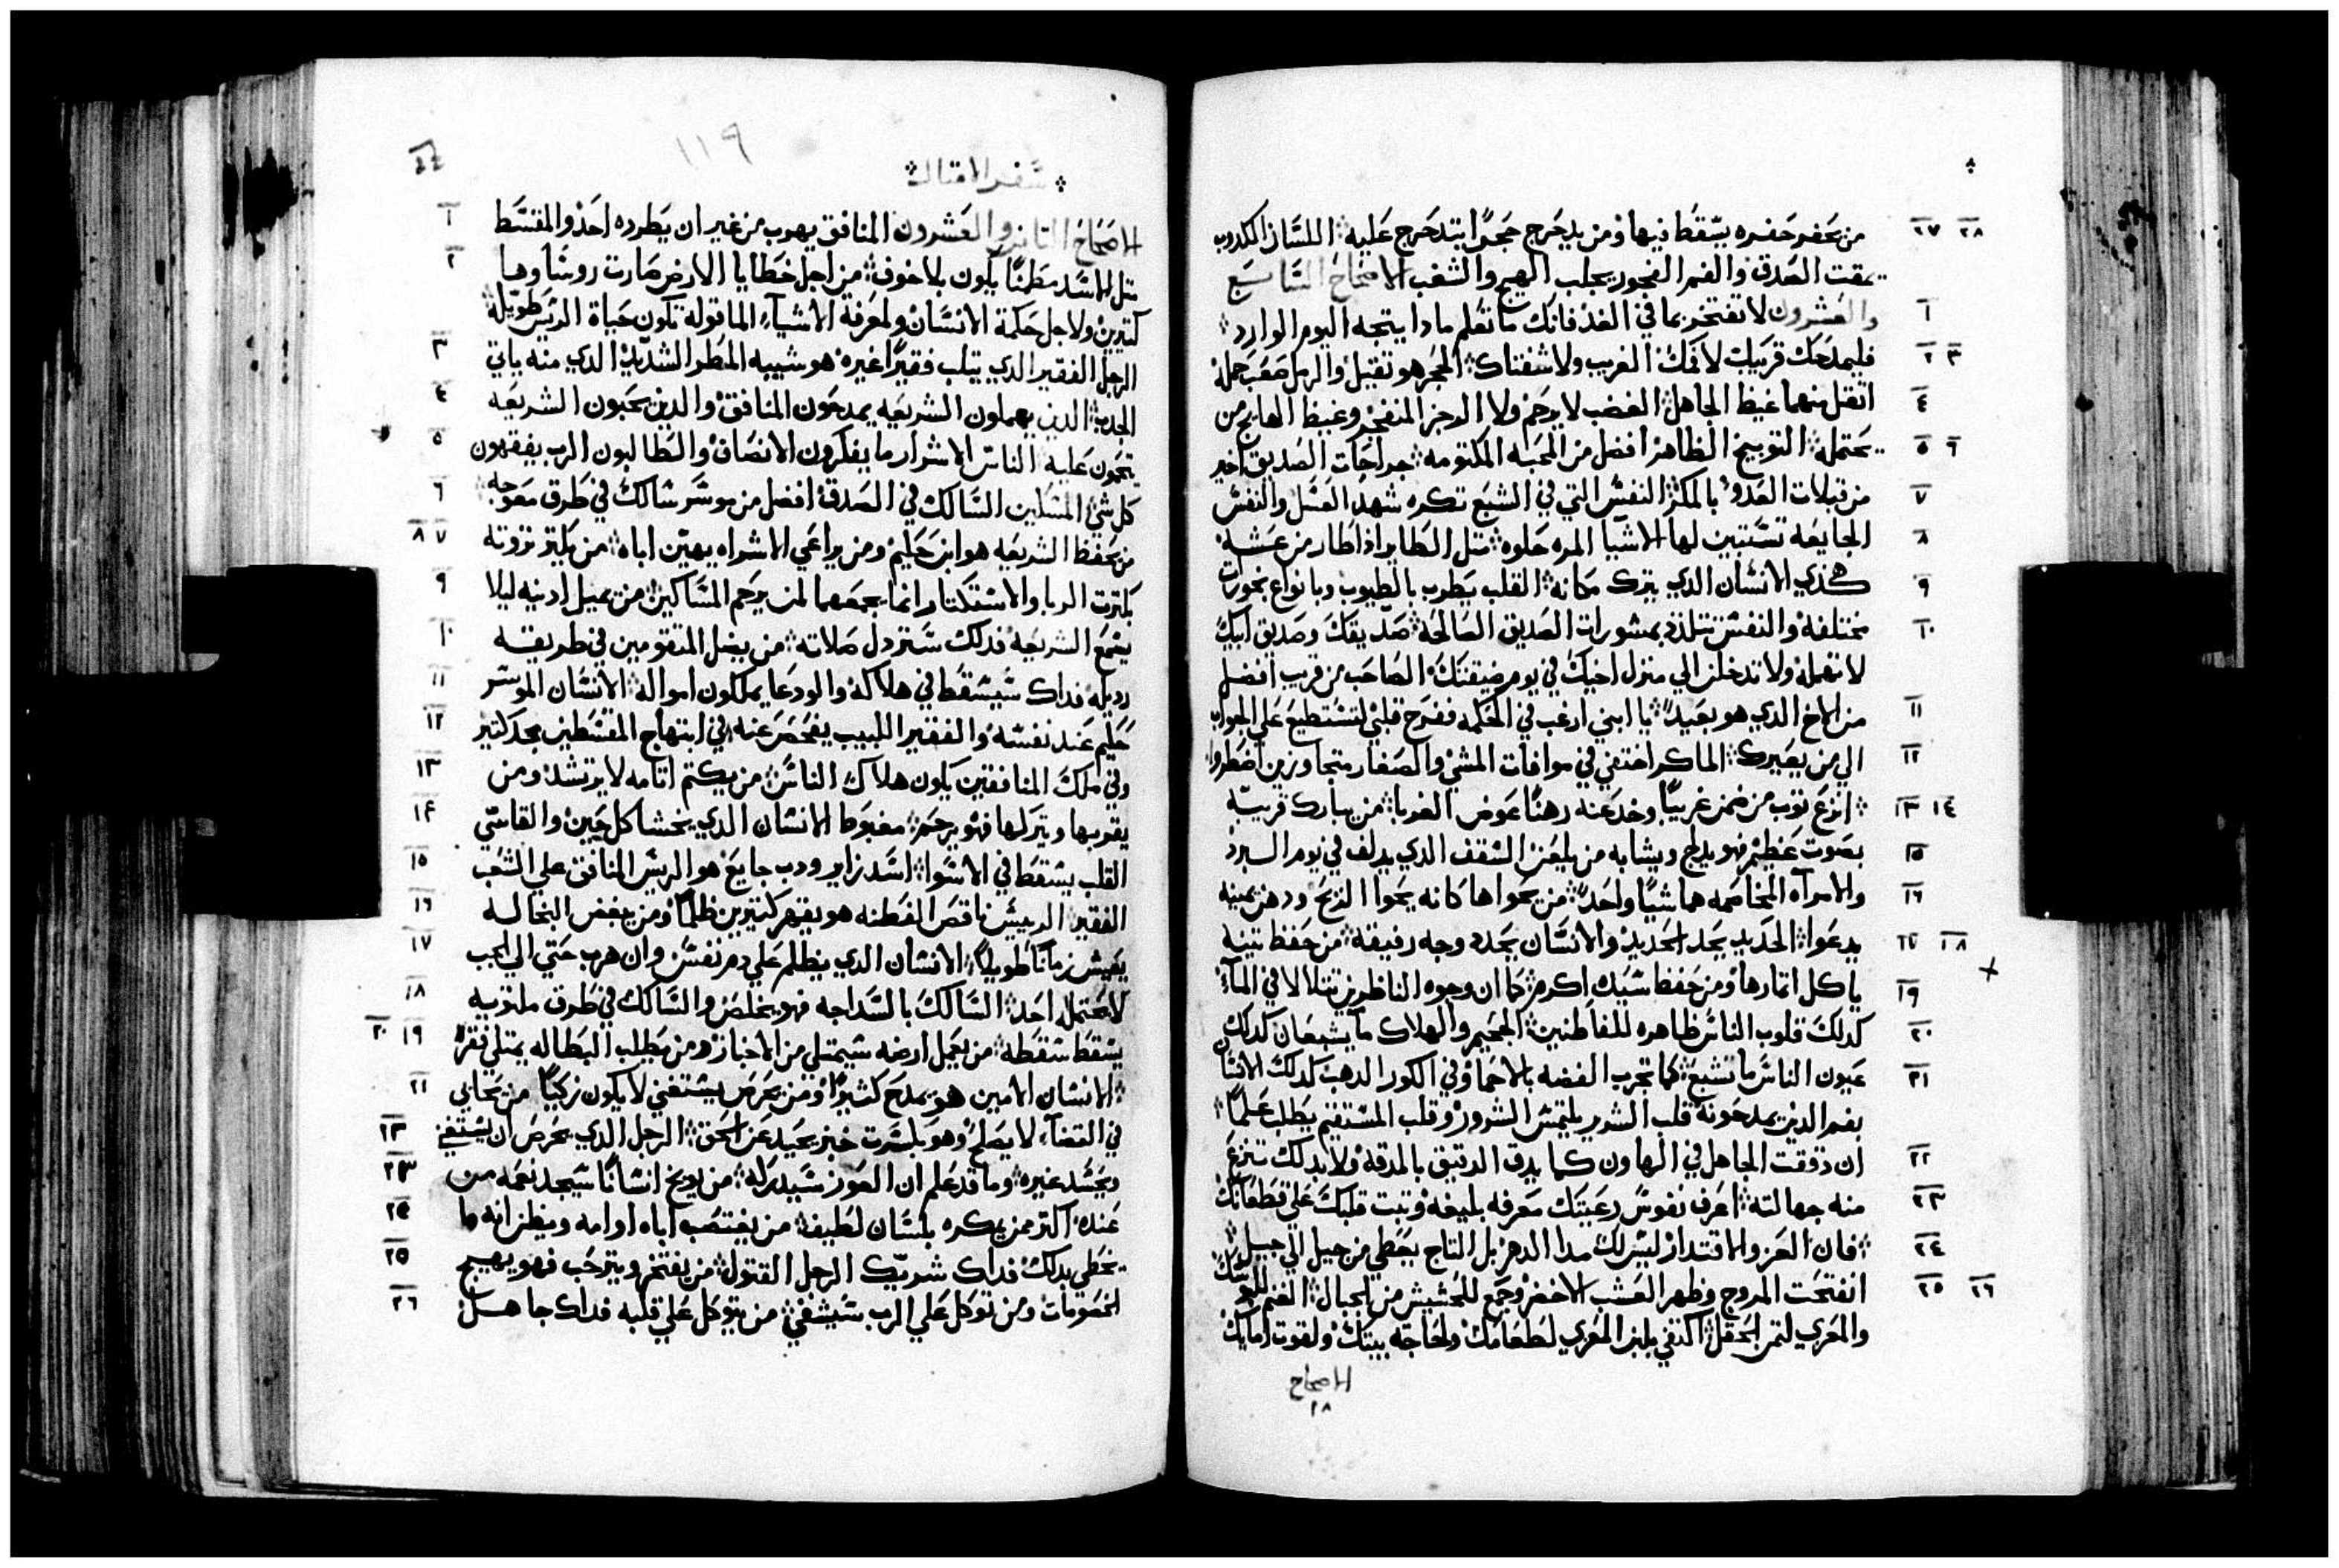 ٢٧ ٢٨ من يحفر حفره يسقط فيها ومن يدحرج حجرًا يتدحرج عليه اللسان الكدوب
يمقت الصدق والفم الفجور يجلب الهيج والشغب الاصحاح السابع
١ والعشرون لا تفتخر بما في الغد فانك ما تعلم مادا ينتجه اليوم الوارد
٢ ٣ فليمدحك قريبك لا فمك الغريب ولا شفتاك الحجر هو تقيل والرمل صعب حمله
٤ اتقل منهما غيظ الجاهل الغضب لا يرحم ولا الرجز المنفجر وغيظ الهايج من
٥ ٦ يحتمله التوبيخ الظاهر افضل من المحبه المكتومه جراحات الصديق اخير
٧ من قبلات العدو بالمكر النفس التي في الشبع تكره شهد العسل والنفس
٨ الجايعه تستبين لها الاشيا المره حلوه متل الطاير اذا طار من عشه
٩ هكذي الانسان الدي يترك مكانه القلب يطرب بالطيوب وبانواع بخورات
١٠ مختلفه والنفس تتلذذ بمشورات الصديق الصالحه صديقك وصديق ابيك
لا تهمله ولا تدخل الي منزل اخيك في يوم ضيقتك الصاحب من قريب افضل
١١ من الاخ الدي هو بعيد يا ابني ارغب في الحكمه ففرح قلبي لتستطيع علي الجواب
١٢ الي من يعيرك الماكر اختفي في موافات المشي والصغار متجاوزين اضطروا
١٣ ١٤ انزع توب من ضمن غريبًا وخد عنه رهنًا عوض الغربا من يبارك قريبه
١٥ بصوت عظيم فهو يدلج ويشابه من يلعن السقف الدي يدلف في يوم البرد
١٦ والامراه المخاصمه هما شيًا واحدًا من يحواها كانه يحوا الريح ودهن يمينه
١٧ ١٨ يدعوا الحديد يحد الحديد والانسان يحدد وجه رفيقه من حفظ تينه
١٩ ياكل اتمارها ومن حفظ سيده اكرم كما ان وجوه الناظرين تتلالا في المآء
٢٠ كدلك قلوب الناس ظاهره للفاطنين الجحيم والهلاك ما يشبعان كدلك
٢١ عيون الناس ما تشبع كما تجرب الفضه بالاحما وفي الكور الدهب كدلك الانسان
بفم الدين يمدحونه قلب الشرير يلتمس الشرور وقلب المستقيم يطلب علمًا
٢٢ ان دققت الجاهل في الهاون كما يدق الدقيق بالمدقه ولا بدلك تنزع
٢٣ منه جهالته اعرف نفوس رعيتك معرفه بليغه وتبت قلبك علي قطعانك
٢٤ فان العز والاقتدار ليس لك مدا الدهر بل التاج يعطي من جيل الي جيل
٢٥ ٢٦ انفتحت المروج وظهر العشب الاخضر وجمع للحشيش من الجبال الغنم للبسك
والمعزي لتمن الحقل اكتفي بلبن المعزي لطعامك ولحاجة بيتك ولقوت امايك
الاصحاح
٢٨
١١٩
سفر الامتال
١ الاصحاح التامن والعشرون المنافق يهرب من غير ان يطرده احد والمقسط
٢ متل الاسد مطمنًا يكون بلا خوف من اجل خطايا الارض صارت روساوها
كتيرين ولاجل حكمة الانسان ولمعرفة الاشيآء المقوله تكون حياة الريس طويله
٣ الرجل الفقير الدي يتلب فقيرًا غيره هو شبيه المطر الشديد الدي منه ياتي
٤ الجدب الدين يهملون الشريعه يمدحون المنافق والدين يحبون الشريعه
٥ يتحمون عليه الناس الاشرار ما يفكرون الانصاف والطالبون الرب يفقهون
٦ كل شي المسكين السالك في الصدق افضل من موسر سالك في طرق معوجه
٧ ٨ من يحفظ الشريعه هو ابن حليم ومن يراعي الاشراه يهين اباه من يكتر تروته
٩ بكترت الربا والاستكتار انما يجمعهما لمن يرحم المساكين من يميل ادنيه ليلا
١٠ يسمع الشريعه فدلك ستردل صلاته من يضل المتقومين في طريقه
١١ رديله فداك سيسقط في هلاكه والودعا يملكون امواله الانسان الموسر
١٢ حليم عند نفسه والفقير اللبيب يفحص عنه في ابتهاج المقسطين مجد كتير
١٣ وفي ملك المنافقين يكون هلاك الناس من يكتم اتامه لا يرتشد ومن
١٤ يقر بها ويتركها فهو يرحم مغبوط الانسان الدي يخشا كل حين والقاسي
١٥ القلب يسقط في الاسوا اسد زاير ودب جايع هو الريس المنافق علي الشعب
١٦ الفقير الرييس ناقص الفطنه هو يقهر كتيرين ظلمًا ومن يبغض البخاله
١٧ يعيش زمانًا طويلًا الانسان الدي يظلم علي دم نفس وان هرب حتي الي الجب
١٨ لا يحتمله احد السالك بالسداجه فهو يخلص والسالك في طرق ملتويه
١٩ ٢٠ يسقط سقطه من يعمل ارضه سيمتلي من الاخباز ومن يطلب البطاله يمتلي فقرًا
٢١ الانسان الامين هو يمدح كتيرًا ومن يحرص يستغني لا يكون زكيًا من يحابي
٢٢ في القضآء لا يصلح وهو بكسرت خبز يحيد عن الحق الرجل الدي يحرص ان يستغني
٢٣ ويحسد غيره وما قد علم ان العوز سيدركه من يوبخ انسانًا سيجد نعمه من
٢٤ عنده اكتر ممن يمكره بلسان لطيف من يغتصب اباه او امه ويظن انه ما
٢٥ يخطي بدلك فداك شريك الرجل القتول من يفتخر ويترحب فهو يهيج
٢٦ الخصومات ومن توكل علي الرب سيشفي من يتوكل علي قلبه فداك جاهل